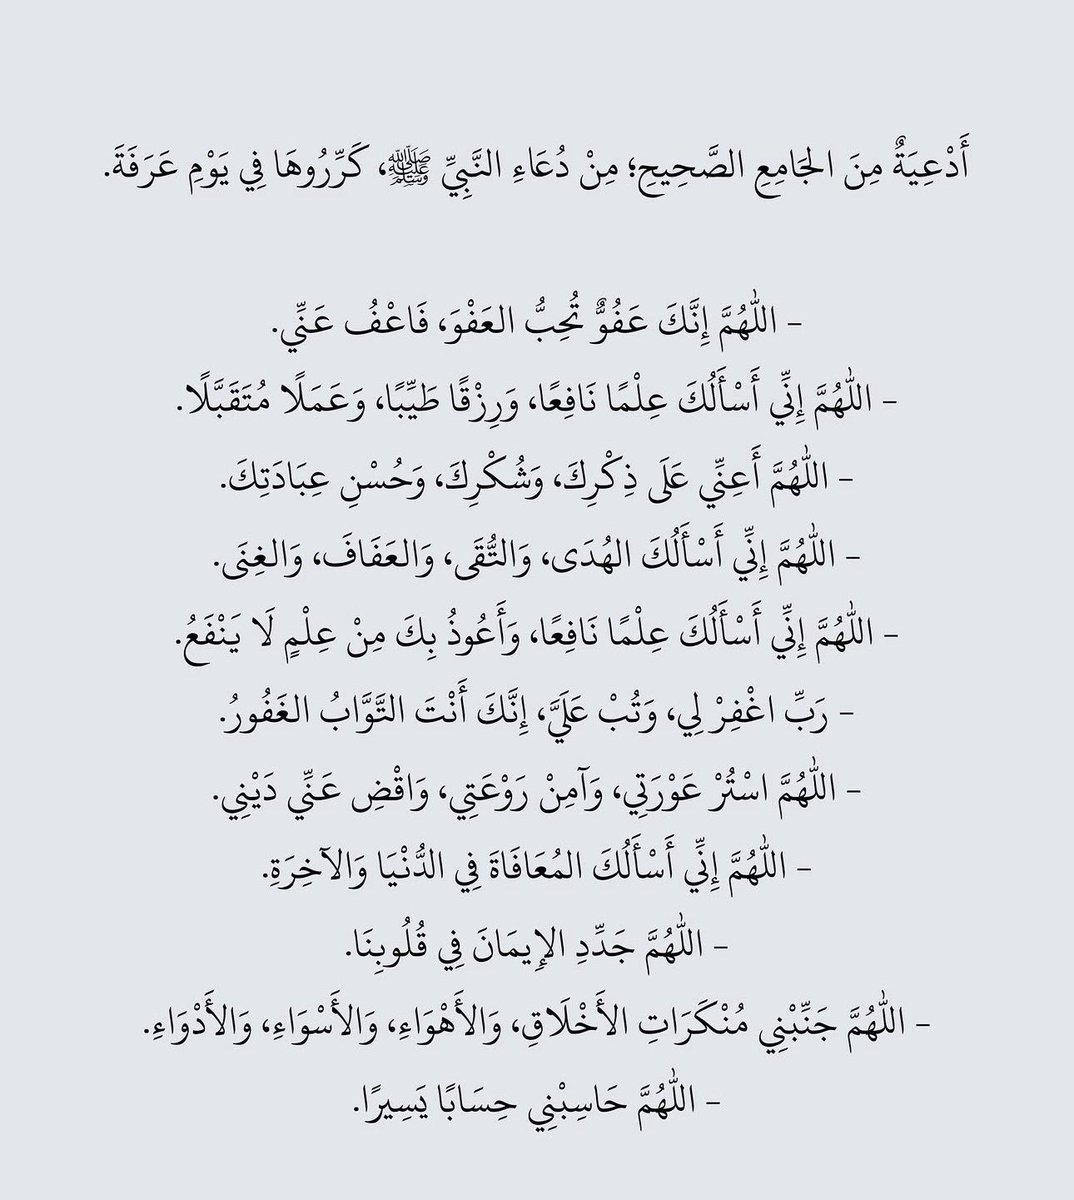 أَدْعِيَةٌ مِنَ الجَامِعِ الصَّحِيحِ؛ مِنْ دُعَاءِ النَّبِيِّ ﷺ، كَرِّرُوهَا فِي يَوْمِ عَرَفَةَ.
- اللّٰهُمَّ إِنَّكَ عَفُوٌّ تُحِبُّ العَفْوَ، فَاعْفُ عَنِّي.
- اللّٰهُمَّ إِنِّي أَسْأَلُكَ عِلْمًا نَافِعًا، وَرِزْقًا طَيِّبًا، وَعَمَلًا مُتَقَبَّلًا.
- اللّٰهُمَّ أَعِنِّي عَلَى ذِكْرِكَ، وَشُكْرِكَ، وَحُسْنِ عِبَادَتِكَ.
- اللّٰهُمَّ إِنِّي أَسْأَلُكَ الهُدَى، وَالتُّقَى، وَالعَفَافَ، وَالغِنَى.
- اللّٰهُمَّ إِنِّي أَسْأَلُكَ عِلْمًا نَافِعًا، وَأَعُوذُ بِكَ مِنْ عِلْمٍ لَا يَنْفَعُ.
- رَبِّ اغْفِرْ لِي، وَتُبْ عَلَيَّ، إِنَّكَ أَنْتَ التَّوَّابُ الغَفُورُ.
- اللّٰهُمَّ اسْتُرْ عَوْرَتِي، وَآمِنْ رَوْعَتِي، وَاقْضِ عَنِّي دَيْنِي.
- اللّٰهُمَّ إِنِّي أَسْأَلُكَ المُعَافَاةَ فِي الدُّنْيَا وَالآخِرَةِ.
- اللّٰهُمَّ جَدِّدِ الإِيمَانَ فِي قُلُوبِنَا.
- اللّٰهُمَّ جَنِّبْنِي مُنْكَرَاتِ الأَخْلَاقِ، وَالأَهْوَاءِ، وَالأَسْوَاءِ، وَالأَدْوَاءِ.
- اللّٰهُمَّ حَاسِبْنِي حِسَابًا يَسِيرًا.